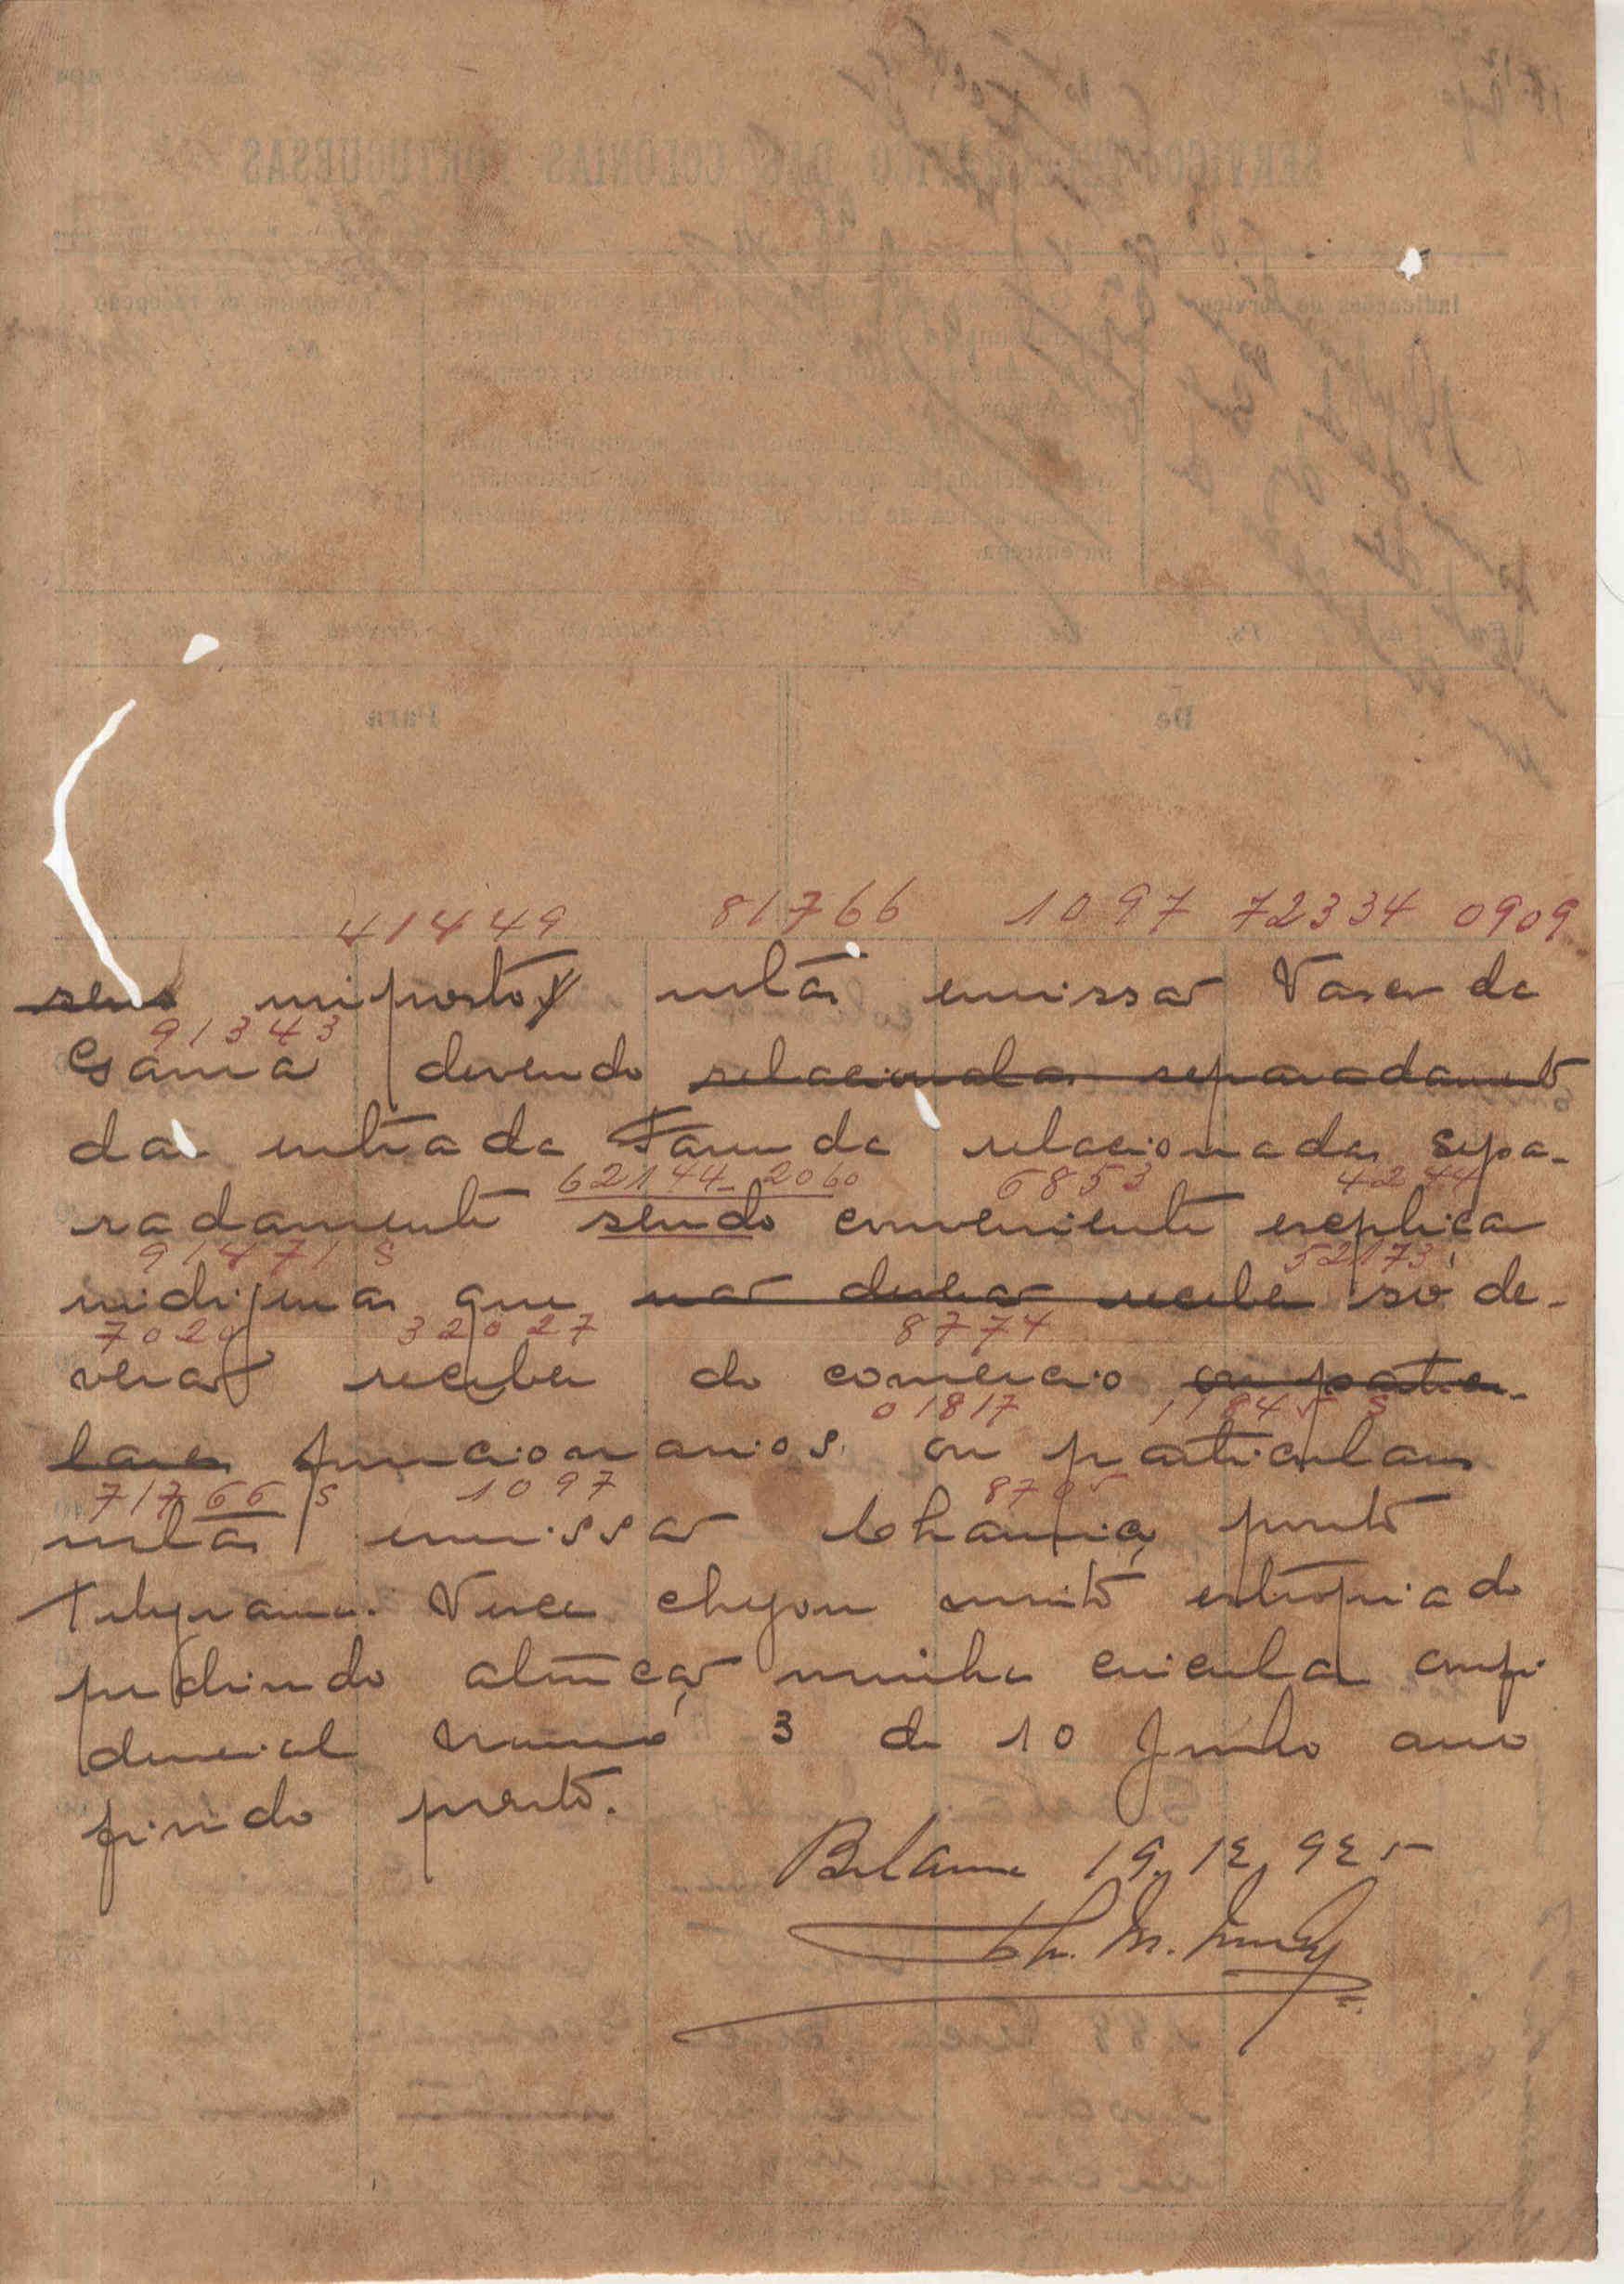 41449 81766 1097 72334 0909
seus imposto notas emissão Vasco da
91343
Gama devendo relacionalas separadamente
dar entrada Fazenda relacionadas sepa-
62144-2060 6853 4244
radamente sendo conveniente explicar
914718 52173
indigenas que não devem receber só de-
7020 32027 8774
verão receber do comercio ou particu-
01817 11845 S
lares funcionarios ou particulares
71766 S 1097 8705
notas emissão Chamiço ponto
Telegrama Vexa chegou muito estropiado
pedindo alteração minha circular confi
dencial numero 3 de 10 Junho ano
findo ponto.
Bolama 19.12.925